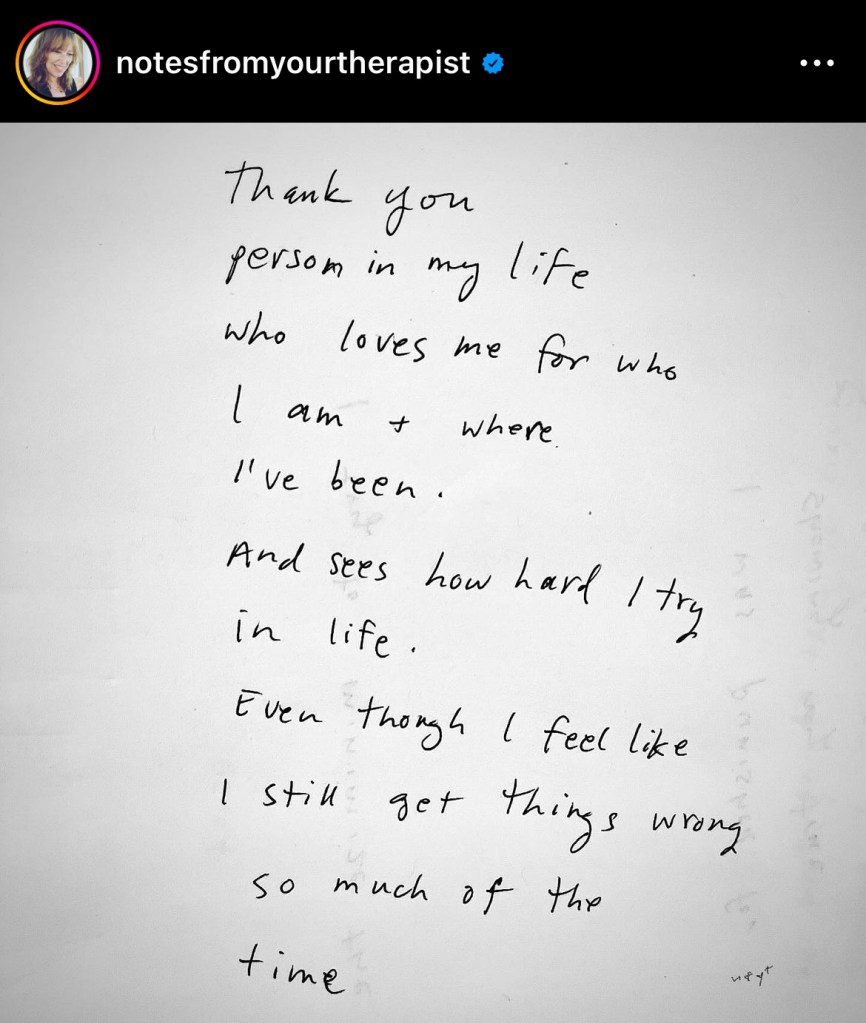 notesfromyourtherapist
Thank you
person in my life
who loves me for who
I am + where
I've been.
And sees how hard I try
in life.
Even though I feel like
I still get things wrong
so much of the
time
nfyt